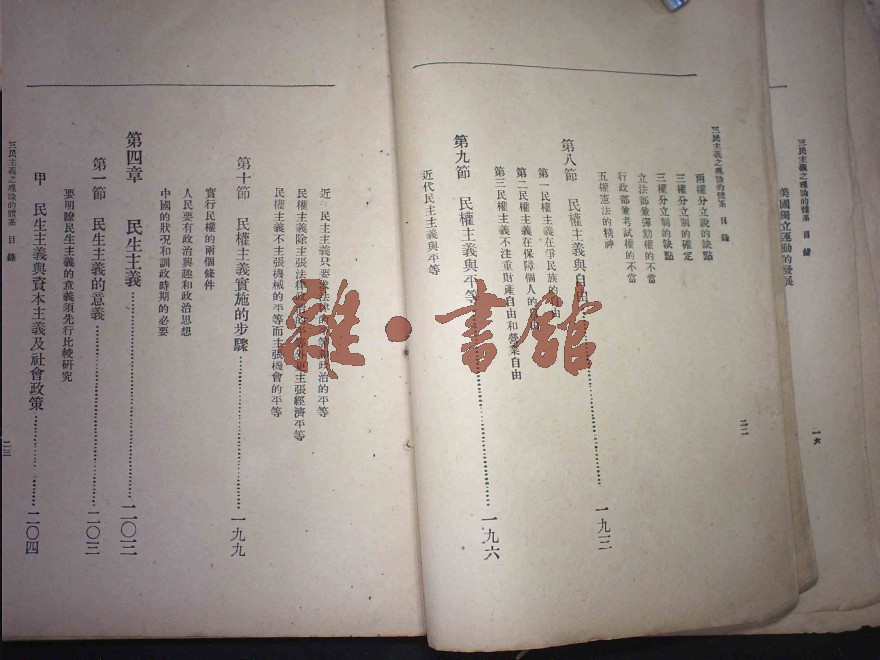 三民主義之理論的體系 目錄
美國獨立運動的發展
一六
三民主義之理論的體系 目錄
兩權分立說的缺點
三權分立制的確定
三權分立制的缺點
立法部兼彈劾權的不當
行政部兼考試權的不當
五權憲法的精神
第八節 民權主義與自由…………一九三
第一民權主義在爭民族的自由
第二民權主義在保障個人的自由
第三民權主義不注重財產自由和營業自由
第九節 民權主義與平等…………一九六
近代民主主義與平等
二二
近 民主主義只要 法律的 等和政治的平等
民權主義除主張法律政治的平等外更主張經濟平等
民權主義不主張機械的平等而主張機會的平等
第十節 民權主義實施的步驟…………一九九
實行民權的兩個條件
人民要有政治興趣和政治思想
中國的狀況和訓政時期的必要
第四章 民生主義…………二〇三
第一節 民生主義的意義…………二〇三
要明瞭民生主義的意義須先行比較研究
甲 民生主義與資本主義及社會政策…………二〇四
三民主義之理論的體系 目錄
二三
雜·書館